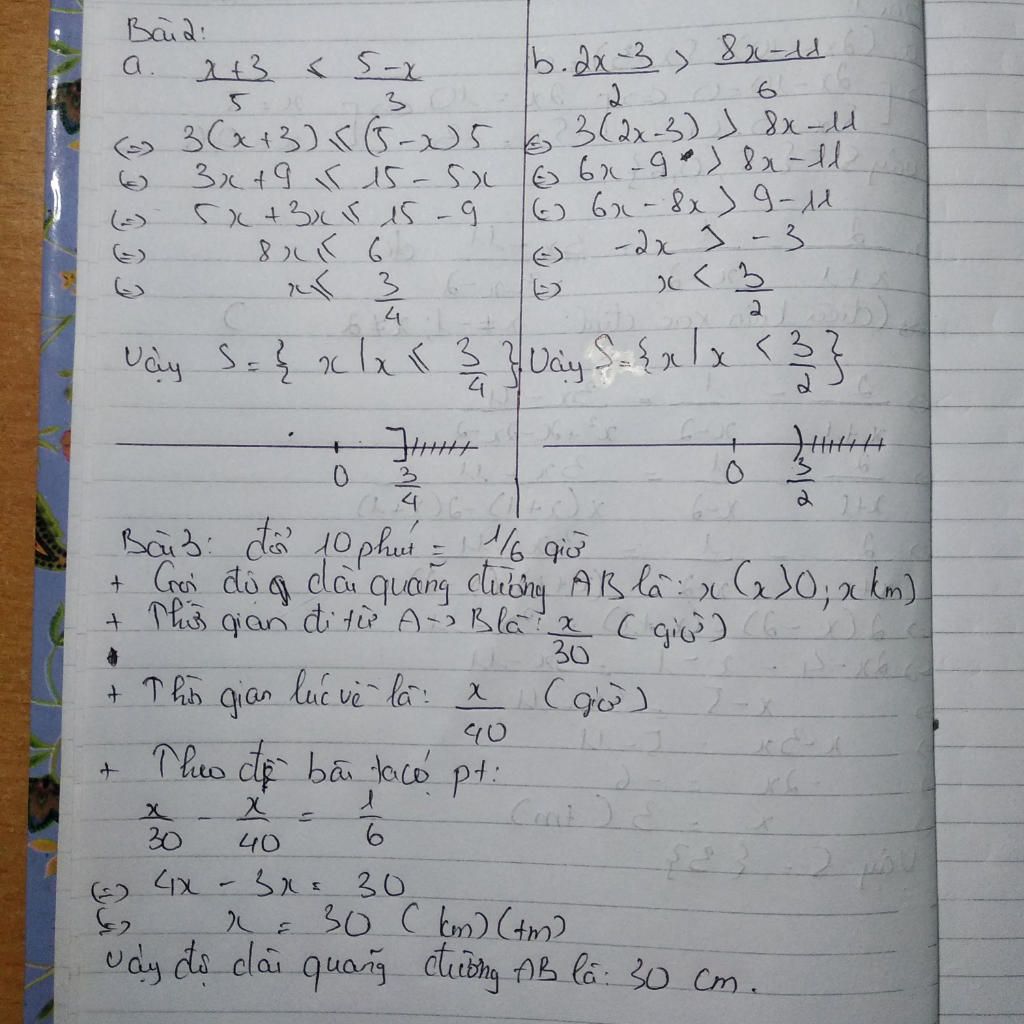 Bài 2:
a. x+3/5 ⩽ 5-x/3
(=) 3(x+3) ⩽ (5-x)5
(=) 3x+9 ⩽ 15-5x
(=) 5x+3x ⩽ 15-9
(=) 8x ⩽ 6
(=) x ⩽ 3/4
Vậy S={ x | x ⩽ 3/4 }
0 3/4
b. 2x-3/2 > 8x-11/6
(=) 3(2x-3) > 8x-11
(=) 6x-9 > 8x-11
(=) 6x-8x > 9-11
(=) -2x > -3
(=) x < 3/2
Vậy S={x | x < 3/2}
0 3/2
Bài 3: đổi 10 phút = 1/6 giờ
+ Gọi độ dài quãng đường AB là: x (x>0; x km)
+ Thời gian đi từ A->B là: x/30 (giờ)
+ Thời gian lúc về là: x/40 (giờ)
+ Theo đề bài ta có pt:
x/30 - x/40 = 1/6
(=) 4x - 3x = 30
(=) x = 30 (km) (tm)
Vậy độ dài quãng đường AB là: 30 cm.